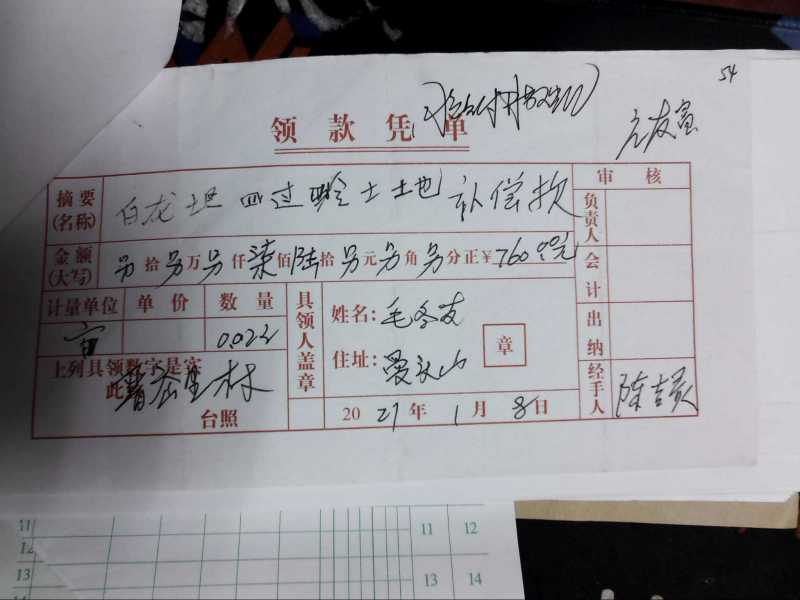 54
领款凭单
审核
摘要(名称) 白龙 土地补偿款
负责人
金额(大写) 另拾另万另仟柒佰陆拾另元另角另分正¥760.00元
会计
计量单位 单价 数量
具领人盖章
姓名:毛冬友
亩 0.022
章
出纳
上列具领数字是实
住址:
此
台照
2021年1月8日
经手人 陈吉
11
12
11 12
13
13 14